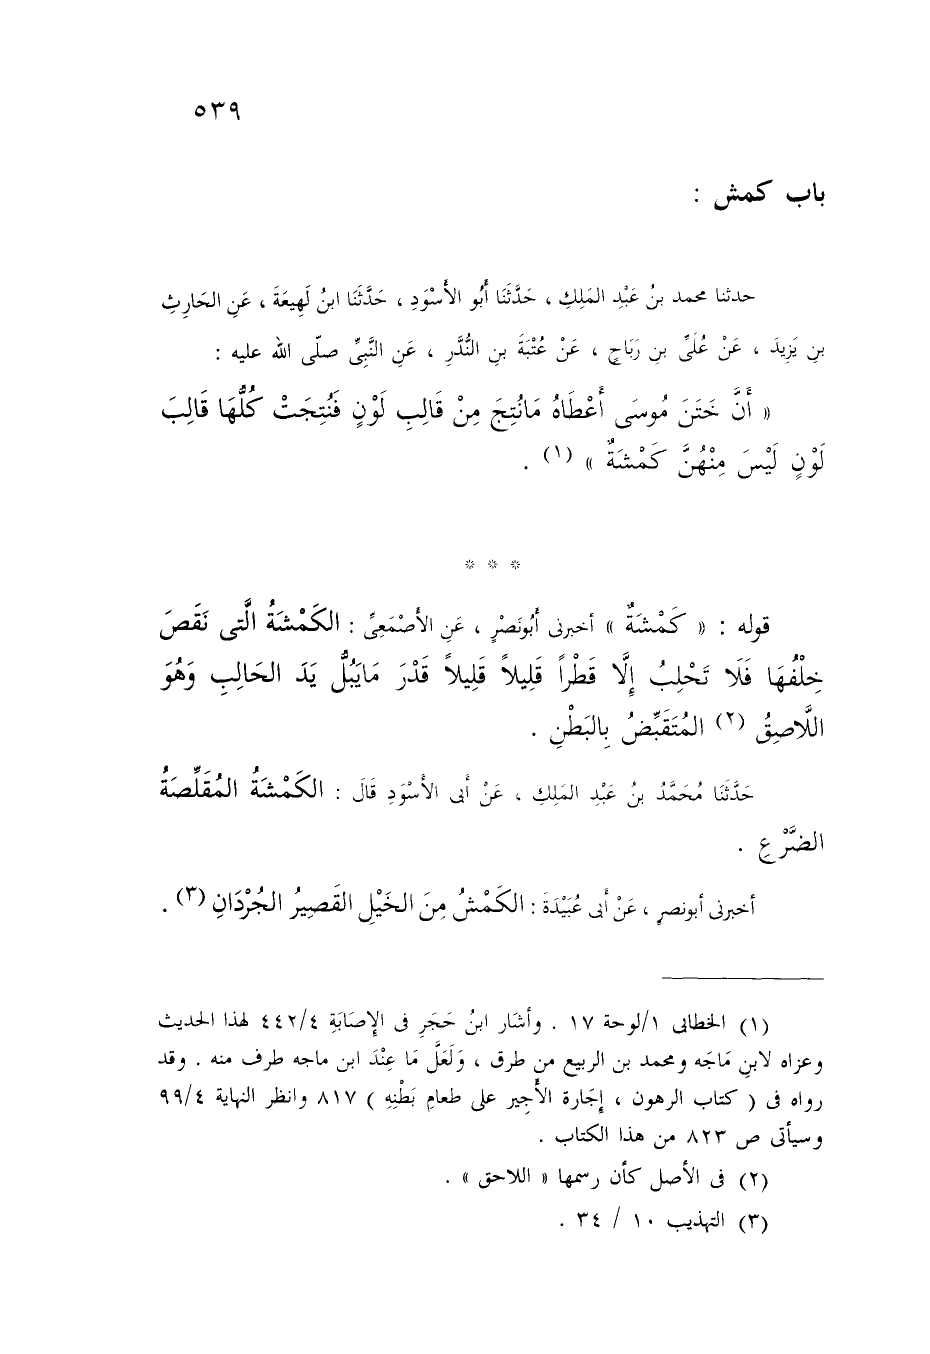 ٥٣٩
باب كمش :
حدثنا محمد بنُ عَبْدِ المَلِكِ ، حَدَّثَنَا أَبُو الأَسْوَدِ ، حَدَّثَنَا ابنُ لَهِيعَةَ ، عَنِ الحَارِثِ
بنِ يَزِيدَ ، عَنْ عُلَىِّ بنِ رَبَاحٍ ، عَنْ عُتْبَةَ بنِ النُّدَّرِ ، عَنِ النَّبِىِّ صلّى الله عليه :
« أَنَّ خَتَنَ مُوسَى أَعْطَاهُ مَانُتِجَ مِنْ قَالِبِ لَوْنٍ فَنُتِجَتْ كُلُّهَا قَالِبَ
لَوْنٍ لَيْسَ مِنْهُنَّ كَمْشَةٌ » (١) .
* * *
قوله : « كَمْشَةٌ » أخبرنى أَبُونَصْرٍ ، عَنِ الأَصْمَعِىِّ : الكَمْشَةُ الَّتِى نَقَصَ
خِلْفُهَا فَلَا تَحْلِبُ إِلَّا قَطْراً قَلِيلاً قَلِيلاً قَدْرَ مَايَبُلُّ يَدَ الحَالِبِ وَهُوَ
اللَّاصِقُ (٢) المُتَقَبِّضُ بِالبَطْنِ .
حَدَّثَنَا مُحَمَّدُ بنُ عَبْدِ المَلِكِ ، عَنْ أَبى الأَسْوَدِ قَالَ : الكَمْشَةُ المُقَلِّصَةُ
الضَّرْعِ .
أخبرنى أبونصرٍ ، عَنْ أَبى عُبَيْدَةَ : الكَمْشُ مِنَ الخَيْلِ القَصِيرُ الجُرْدَانِ (٣) .
(١) الخطابى ١/لوحة ١٧ . وأشَار ابنُ حَجَرٍ فى الإِصَابَةِ ٤٤٢/٤ لهذا الحديث
وعزاه لابنِ مَاجَه ومحمد بن الربيع من طرق ، وَلَعَلَّ مَا عِنْدَ ابن ماجه طرف منه . وقد
رواه فى ( كتاب الرهون ، إجَارة الأَجِير على طعامِ بَطْنِهِ ) ٨١٧ وانظر النهاية ٩٩/٤
وسيأتى ص ٨٢٣ من هذا الكتاب .
(٢) فى الأصل كأن رسمها « اللاحق » .
(٣) التهذيب ١٠ / ٣٤ .